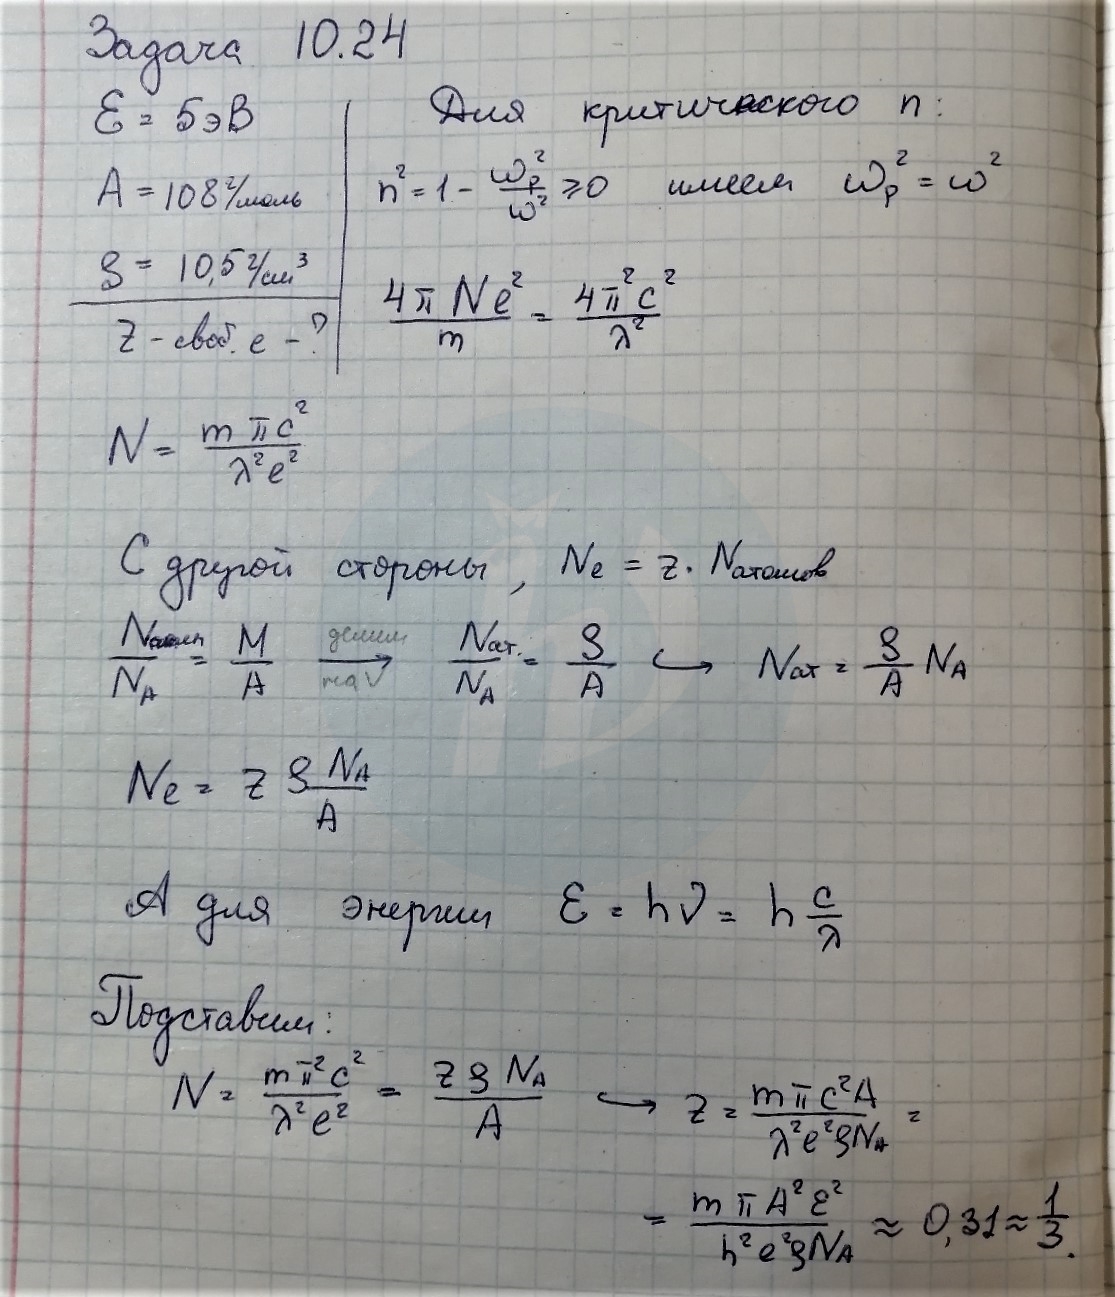 Задача 10.24
ℰ = 5 эВ
A = 108 г/моль
ρ = 10,5 г/см³
z - своб. e - ?
Для критического n:
n² = 1 - ωp²/ω² ⩾ 0 имеем ωp² = ω²
4πNe²/m = 4π²c²/λ²
N = mπc²/λ²e²
С другой стороны, Ne = z · Nатомов
Nатом/NA = M/A делим на V → Nат./NA = ρ/A ↪ Nат = ρ/A NA
Ne = zρ NA/A
А для энергии ℰ = hν = h c/λ
Подставим:
N = mπ²c²/λ²e² = zρNA/A ↪ z = mπc²A/λ²e²ρNA =
= mπA²ℰ²/h²e²ρNA ≈ 0,31 ≈ 1/3.